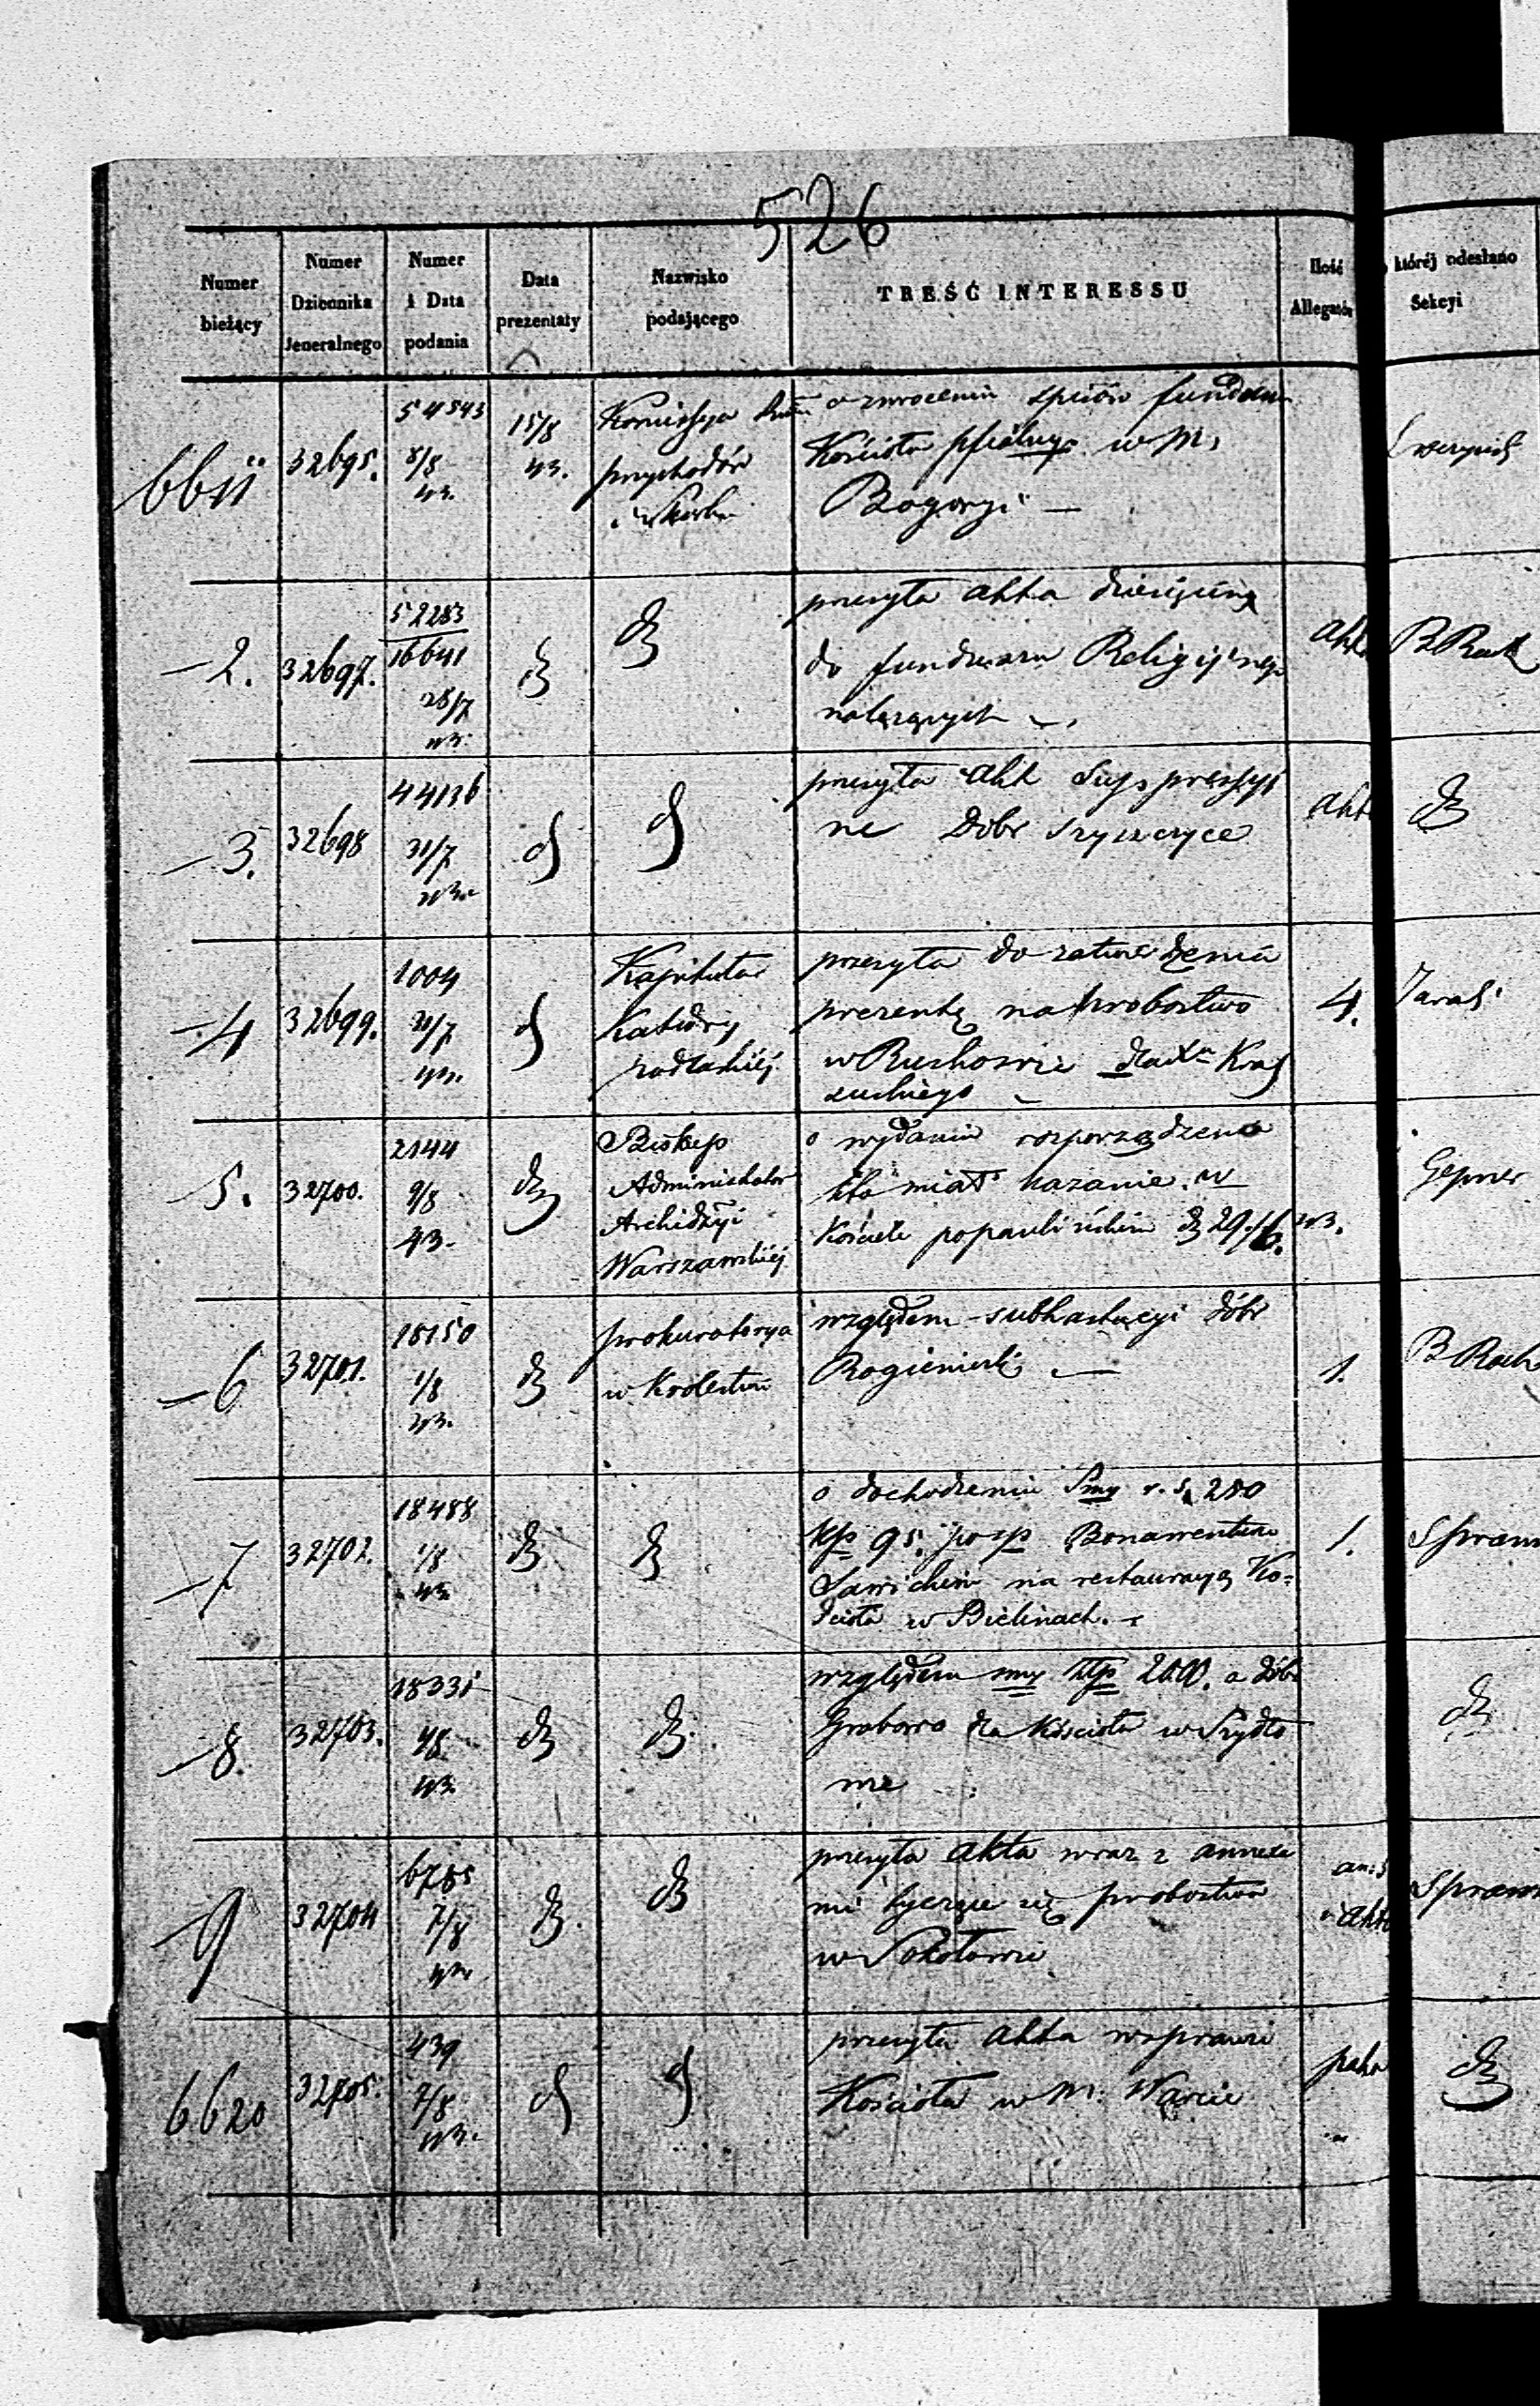 526
Numer bieżący
Numer Dziennika Jeneralnego
Numer i Data podania
Data prezentaty
Nazwisko podającego
TREŚĆ INTERESSU
Ilość Allegatów
której odesłano Sekcyi
6611
32695.
54543
8/8
43.
15/8
43.
Kommissya
przychodów
i Skarbu
o zwrócenie spisów fundusz
Kościoła pfialnego w M.
Bogoryi —
—2.
32697.
52283
16641
28/7
43.
przesyła akta dziesięcin
do funduszu Religijnego
należących —
Akta
B Rach
—3.
32698
44136
31/7
43.
przesyła akt Suppressyj
ne Dóbr
akt
—4
32699.
1004
31/7
43.
Kapituła
Katedry
Podlaskiéj
przesyła do zatwierdzenia
prezentę na probostwo
w Ruskowie dla Xa Kras
suskiego —
4.
—5.
32700.
2144
9/8
43.
Biskup
Administrator
Archidyi
Warszawskiéj
o wydanie rozporządzenia
kto miał kazanie w
Kościele popaulińskim d 29/6. 43.
Gepner
—6
32701.
18150
1/8
43.
prokuratorya
w Królestwie
względem subhastacyi dóbr
Rogienieski —
1.
B Rach
—7
32702.
18488
1/8
43.
o dochodzeniu Smy r. s. 280
kp 95. po sp Bonawenturze
Sawickim na restauracyą Ko=
ścioła w Bielinach. —
1.
Spraw
—8.
32703.
18331
43.
względem smy złp 2000. a dóbr
Grabowo dla Kościoła w Szydło
wie
—9
32704
6785
7/8
43.
przesyła akta wraz z annexa
mi tyczące się probostwa
w Sokołowie
i akta
Spraw
6620
32705.
439
7/8
43.
przesyła akta w sprawie
Kościoła w M. Warcie